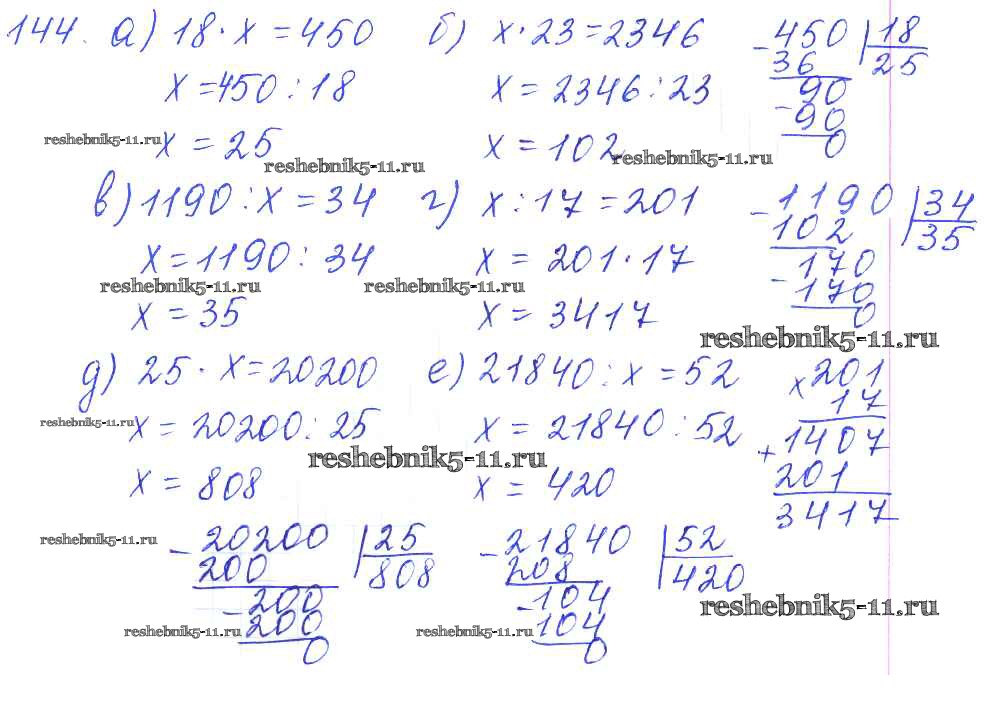 144. а) 18 · x = 450 б) x · 23 = 2346
x = 450 : 18 x = 2346 : 23
x = 25 x = 102
- 450 | 18
36 | 25
- 90
90
0
reshebnik5-11.ru
reshebnik5-11.ru
reshebnik5-11.ru
в) 1190 : x = 34 г) x : 17 = 201
x = 1190 : 34 x = 201 · 17
x = 35 x = 3417
- 1190 | 34
102 | 35
- 170
170
0
reshebnik5-11.ru
reshebnik5-11.ru
reshebnik5-11.ru
д) 25 · x = 20200 е) 21840 : x = 52
x = 20200 : 25 x = 21840 : 52
x = 808 x = 420
x 201
17
+ 1407
201
3417
reshebnik5-11.ru
reshebnik5-11.ru
- 20200 | 25
200 | 808
- 200
200
0
- 21840 | 52
208 | 420
- 104
104
0
reshebnik5-11.ru
reshebnik5-11.ru
reshebnik5-11.ru
reshebnik5-11.ru